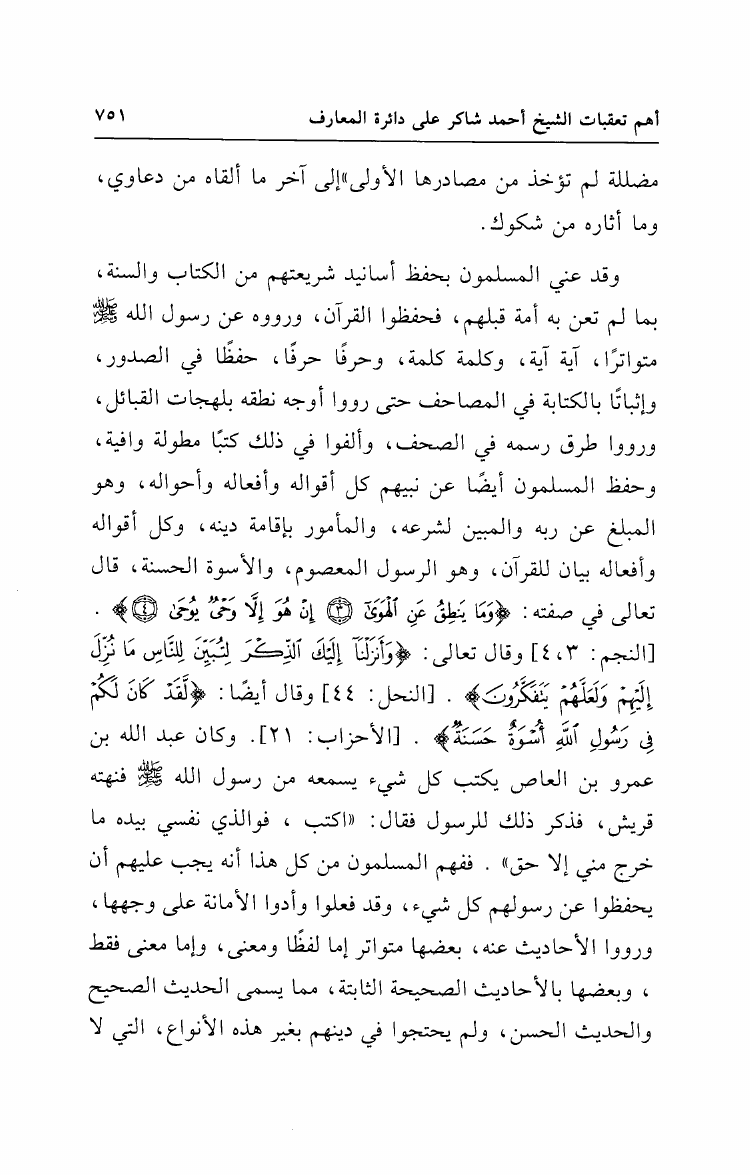 أهم تعقبات الشيخ أحمد شاكر على دائرة المعارف ٧٥١
مضللة لم تؤخذ من مصادرها الأولى»إلى آخر ما ألقاه من دعاوي،
وما أثاره من شكوك.
وقد عني المسلمون بحفظ أسانيد شريعتهم من الكتاب والسنة،
بما لم تعن به أمة قبلهم، فحفظوا القرآن، ورووه عن رسول الله ﷺ
متواترًا، آية آية، وكلمة كلمة، وحرفًا حرفًا، حفظًا في الصدور،
وإثباتًا بالكتابة في المصاحف حتى رووا أوجه نطقه بلهجات القبائل،
ورووا طرق رسمه في الصحف، وألفوا في ذلك كتبًا مطولة وافية،
وحفظ المسلمون أيضًا عن نبيهم كل أقواله وأفعاله وأحواله، وهو
المبلغ عن ربه والمبين لشرعه، والمأمور بإقامة دينه، وكل أقواله
وأفعاله بيان للقرآن، وهو الرسول المعصوم، والأسوة الحسنة، قال
تعالى في صفته: ﴿وَمَا يَنطِقُ عَنِ ٱلْهَوَىٰٓ ۝٣ إِنْ هُوَ إِلَّا وَحْىٌ يُوحَىٰ ۝٤﴾ .
[النجم: ٣،٤] وقال تعالى: ﴿وَأَنزَلْنَآ إِلَيْكَ ٱلذِّكْرَ لِتُبَيِّنَ لِلنَّاسِ مَا نُزِّلَ
إِلَيْهِمْ وَلَعَلَّهُمْ يَتَفَكَّرُونَ﴾ . [النحل: ٤٤] وقال أيضًا: ﴿لَّقَدْ كَانَ لَكُمْ
فِى رَسُولِ ٱللَّهِ أُسْوَةٌ حَسَنَةٌ﴾ . [الأحزاب: ٢١]. وكان عبد الله بن
عمرو بن العاص يكتب كل شيء يسمعه من رسول الله ﷺ فنهته
قريش، فذكر ذلك للرسول فقال: «اكتب ، فوالذي نفسي بيده ما
خرج مني إلا حق» . ففهم المسلمون من كل هذا أنه يجب عليهم أن
يحفظوا عن رسولهم كل شيء، وقد فعلوا وأدوا الأمانة على وجهها،
ورووا الأحاديث عنه، بعضها متواتر إما لفظًا ومعنى، وإما معنى فقط
، وبعضها بالأحاديث الصحيحة الثابتة، مما يسمى الحديث الصحيح
والحديث الحسن، ولم يحتجوا في دينهم بغير هذه الأنواع، التي لا